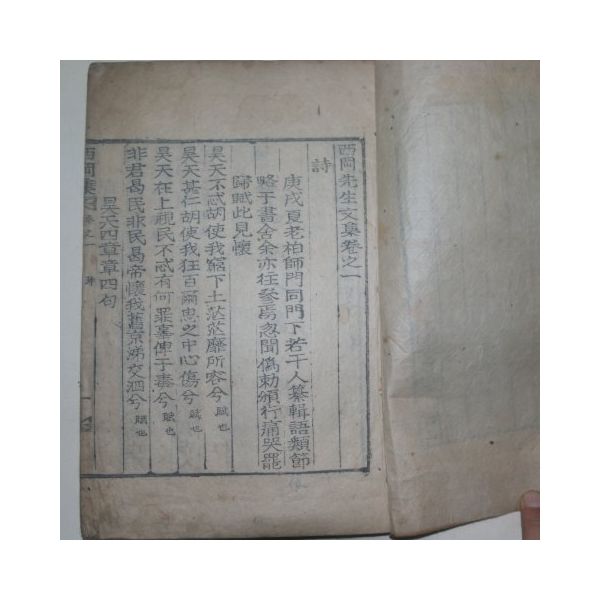 西岡先生文集卷之一
詩
庚戌夏老柏師門同門下若干人纂輯語類節
略于書舍余亦往參焉忽聞僞勅頒行痛哭罷
歸賦此見懷
昊天不忒胡使我窮下土茫茫靡所容兮 賦也
昊天甚仁胡使我狂百爾思之中心傷兮 賦也
昊天在上視民不忒有何罪辜俾予毒兮 賦也
非君曷民非民曷帝懷我舊京涕交泗兮 賦也
昊天四章章四句
西岡集 卷之一 詩 一